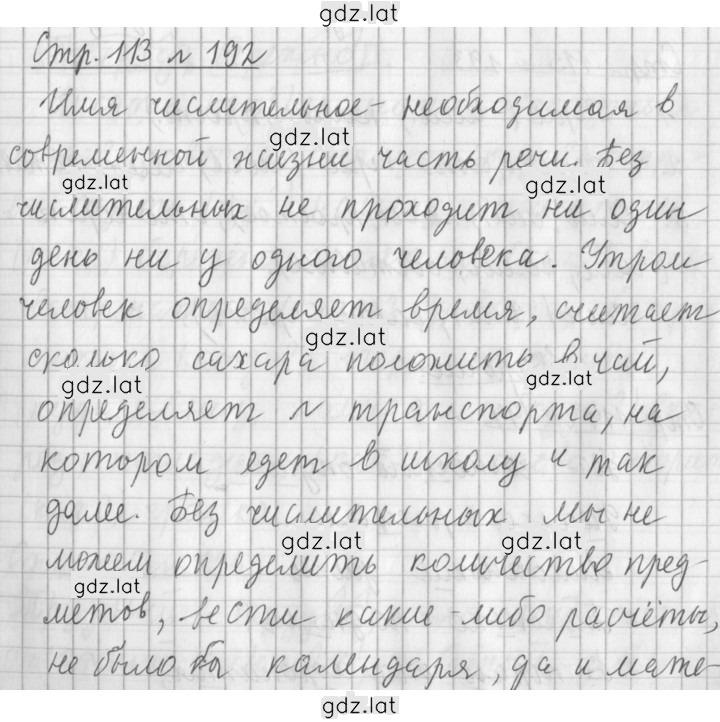 gdz.lat
Стр. 113 № 192
Имя числительное - необходимая в
gdz.lat
современной жизни часть речи. Без
gdz.lat gdz.lat
числительных не проходит ни один
день ни у одного человека. Утром
gdz.lat
человек определяет время, считает
gdz.lat
сколько сахара положить в чай,
gdz.lat gdz.lat
определяет № транспорта, на
котором едет в школу и так
gdz.lat
далее. Без числительных мы не
gdz.lat gdz.lat
можем определить количество пред-
gdz.lat
метов, вести какие-либо расчёты,
gdz.lat
не было бы календаря, да и мате-
gdz.lat